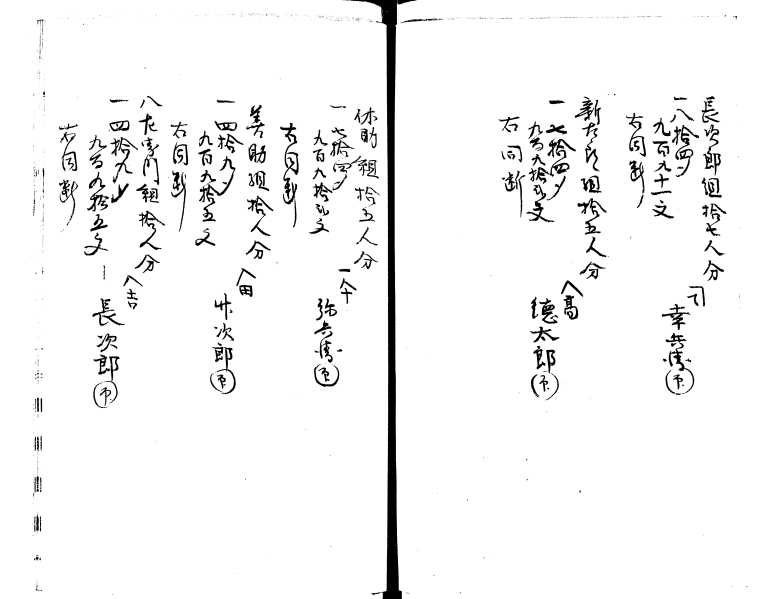 長次郎組拾七人分
一八拾四〆
九百九十一文
右同断
幸兵衛㊞
新左衛門組拾五人分
一七拾四〆
九百九拾弐文
右同断
𠆢高
徳太郎㊞
休助組拾五人分
一七拾四〆
九百九拾弐文
右同断
𠆢十
弥兵衛㊞
善助組拾人分
一四拾九〆
九百九拾五文
右同断
𠆢田
廿次郎㊞
八左衛門組拾人分
一四拾九〆
九百九拾五文
右同断
𠆢吉
長次郎㊞